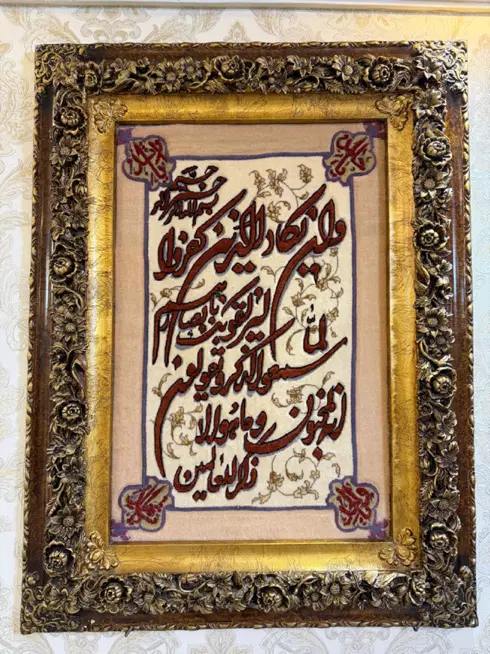 بسم الله الرحمن الرحيم
وان يكاد الذين كفروا
ليزلقونك بابصارهم
لما
سمعوا الذكر و يقولون
انه لمجنون
و ما هو الا
ذكر للعالمين